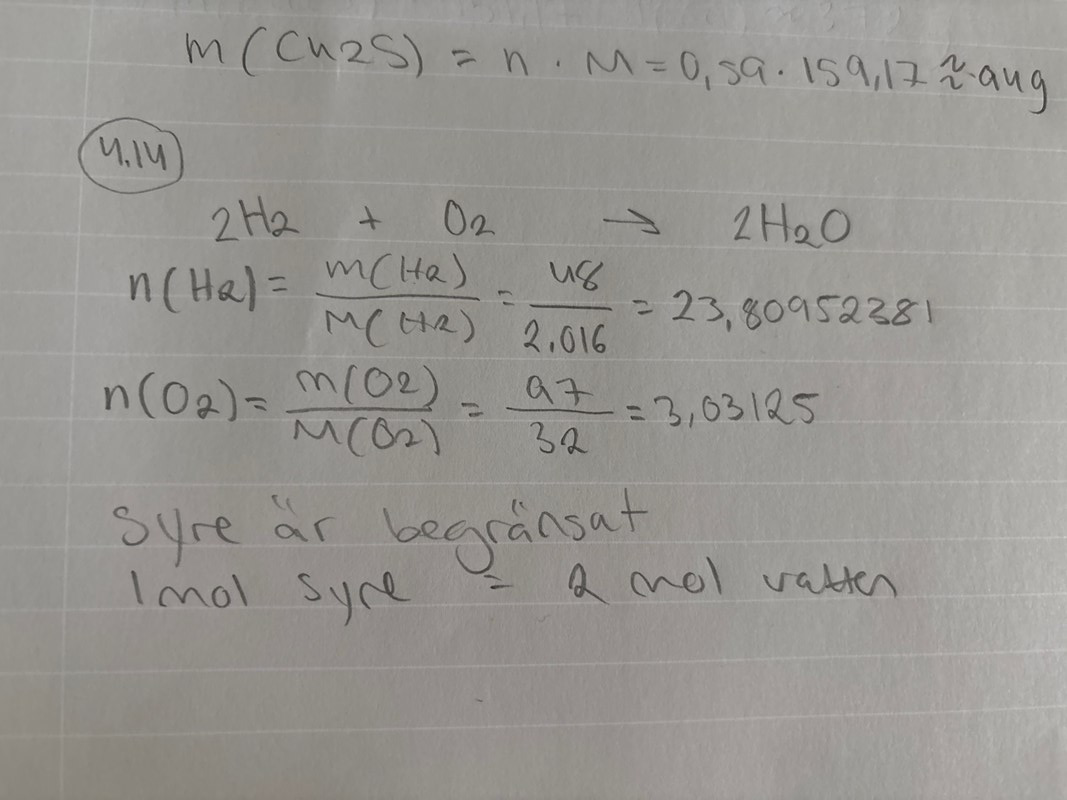 m(Cu2S) = n · M = 0,59 · 159,17 ≈ 94g
4.14
2H2 + O2 → 2H2O
n(H2) = m(H2) / M(H2) = 48 / 2.016 = 23,80952381
n(O2) = m(O2) / M(O2) = 97 / 32 = 3,03125
Syre är begränsat
1mol syre = 2 mol vatten